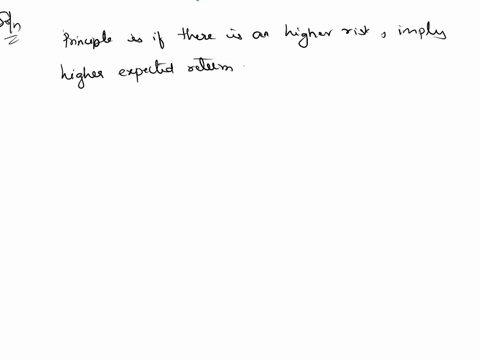 Soln
Principle is if there is an higher risk, imply
higher expected return.